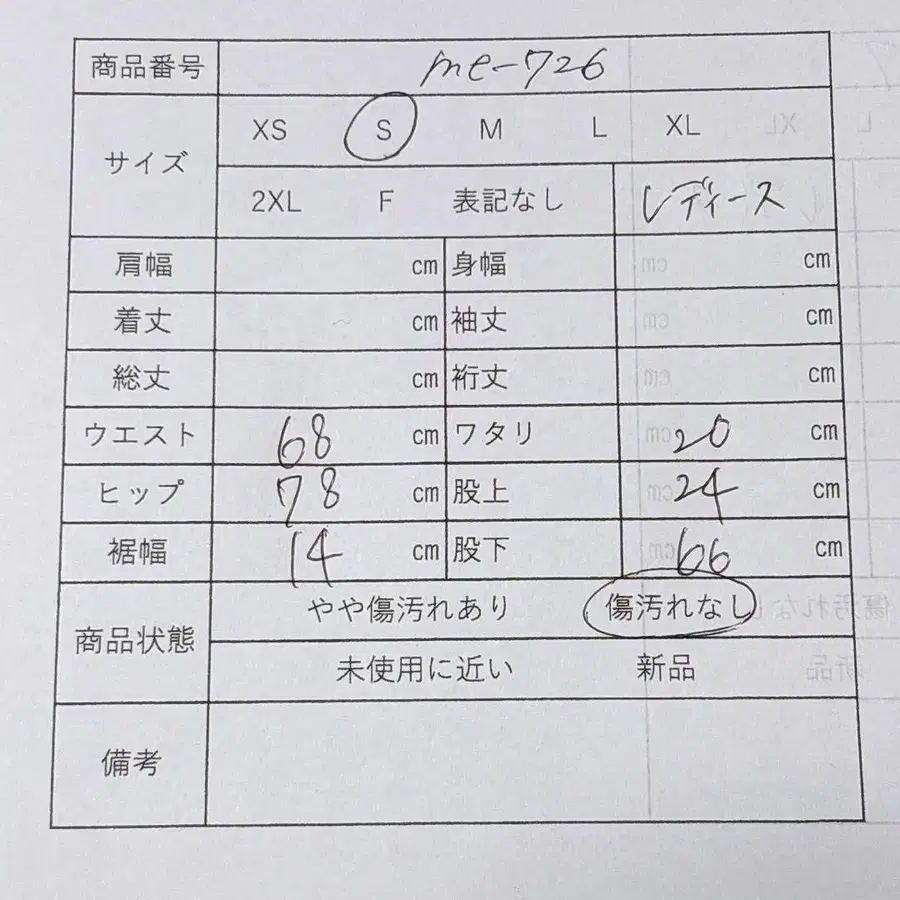 商品番号 me-726
サイズ XS S M L XL
2XL F 表記なし レディース
肩幅 cm 身幅 cm
着丈 cm 袖丈 cm
総丈 cm 裄丈 cm
ウエスト 68 cm ワタリ 20 cm
ヒップ 78 cm 股上 24 cm
裾幅 14 cm 股下 66 cm
商品状態 やや傷汚れあり 傷汚れなし
未使用に近い 新品
備考